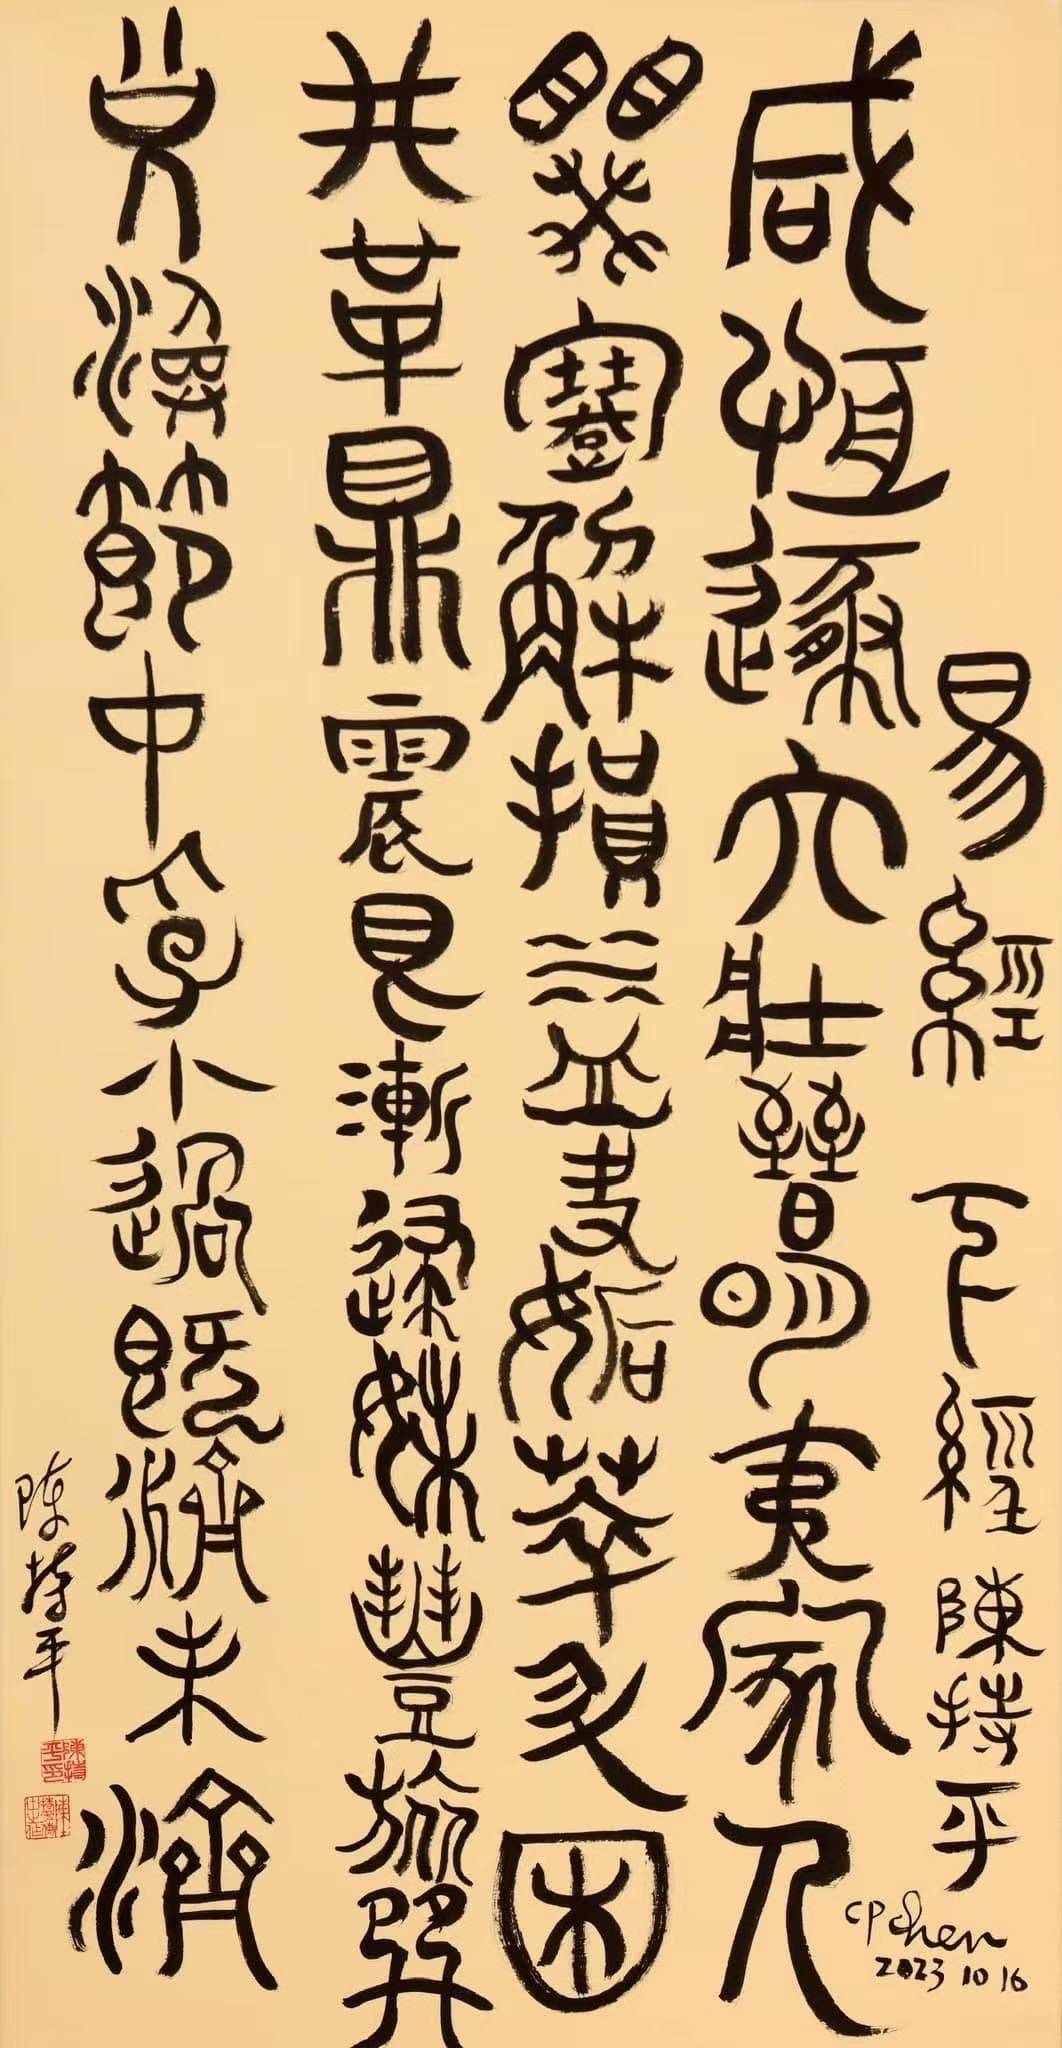 易經 下經 陳持平
CP Chen
2023 10 16
咸恆遯大壯晉明夷家人
睽蹇解損益夬姤萃升困
井革鼎震艮漸歸妹豐旅巽
兌渙節中孚小過既濟未濟
陳持平
陳持平印